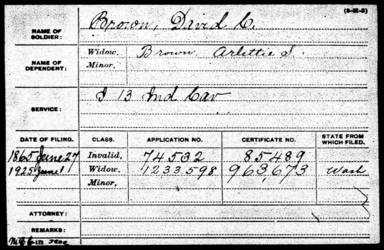 NAME OF SOLDIER: Brown, David C.
NAME OF DEPENDENT: Widow, Brown Arlettie S.
Minor,
SERVICE: I 13 Ind Cav
DATE OF FILING. CLASS. APPLICATION NO. CERTIFICATE NO. STATE FROM WHICH FILED.
1865 June 27 Invalid, 74532 85489
1925 June 1 Widow, 1233598 963,673 Wash
Minor,
ATTORNEY:
REMARKS: